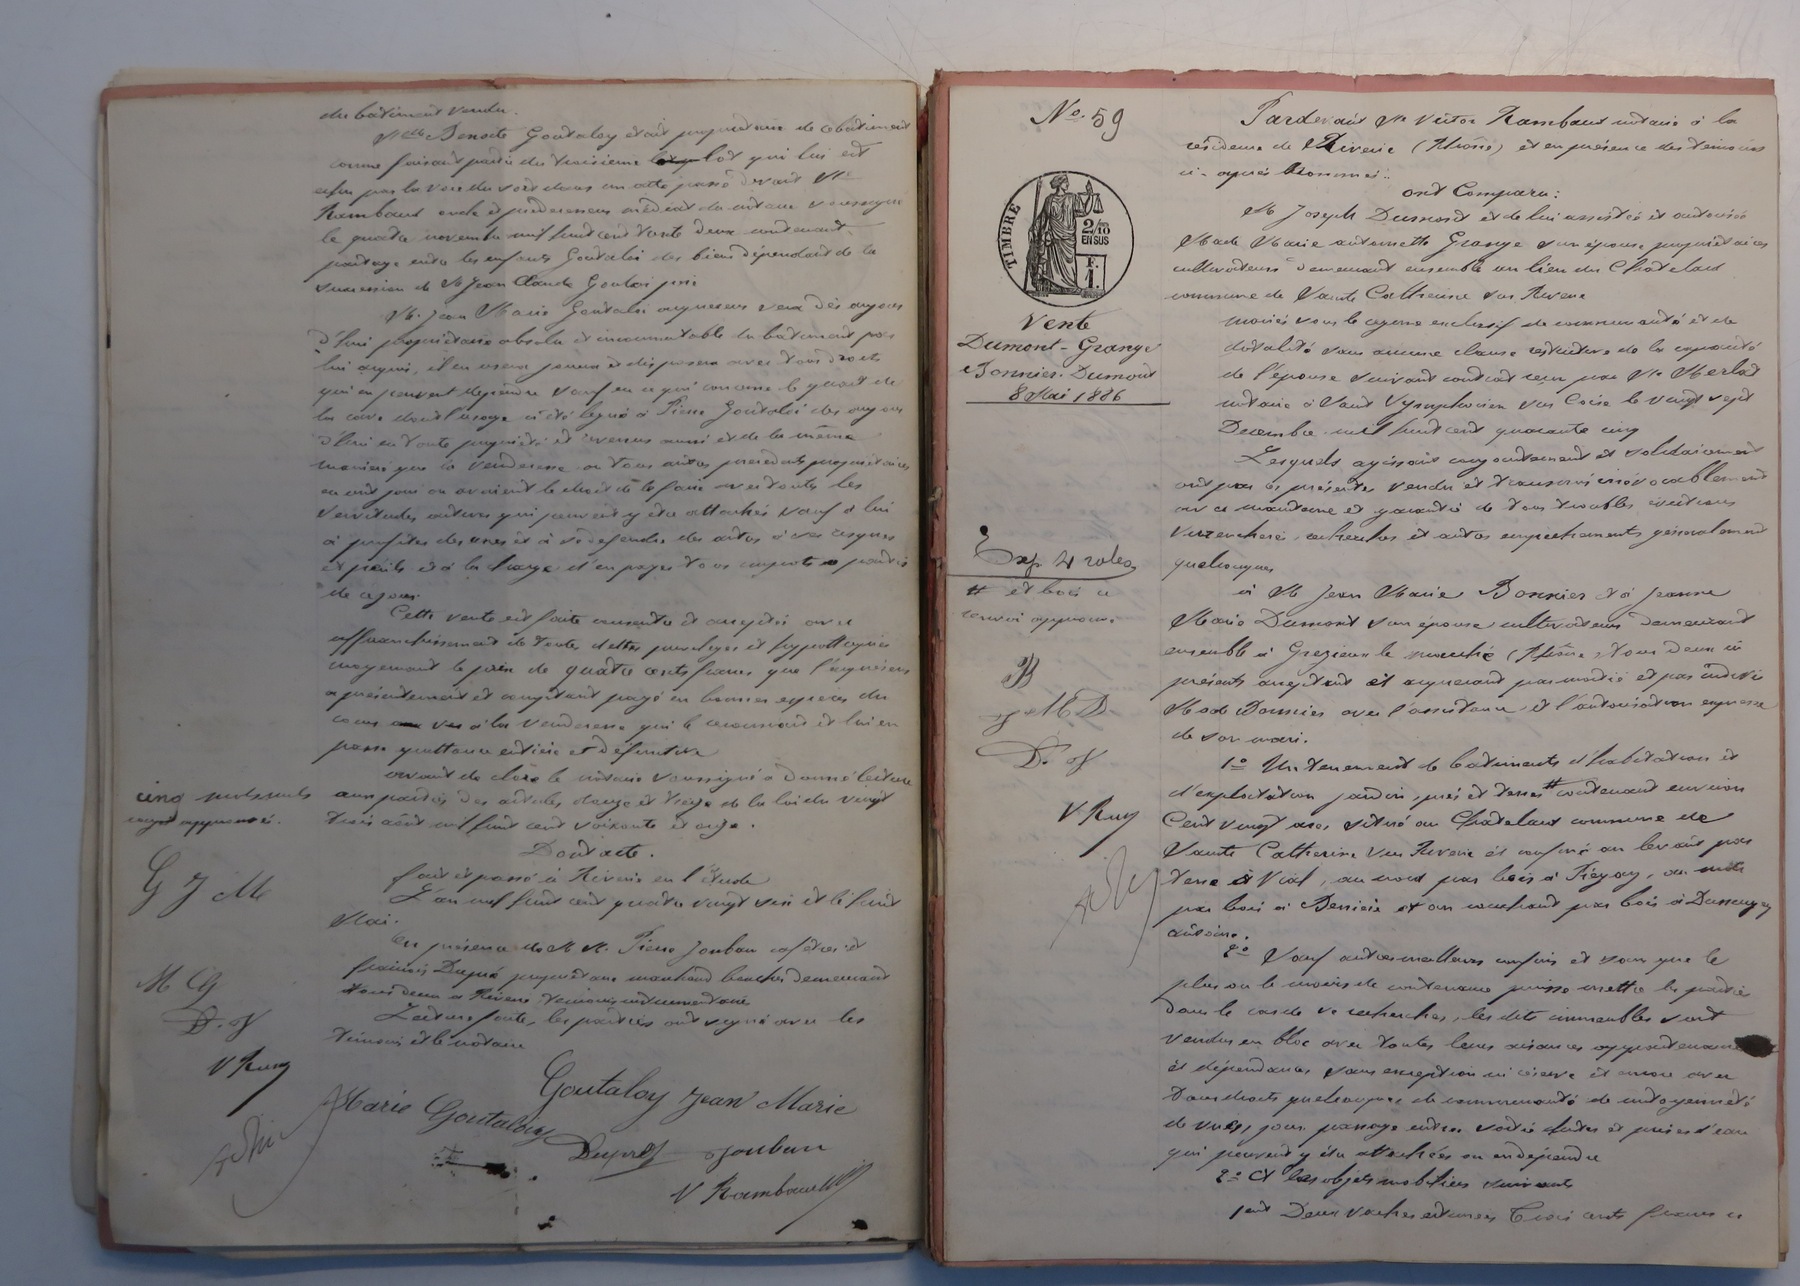 du bâtiment vendu.
Melle Benoîte Goutaloy était propriétaire de ce bâtiment
comme faisant partie du troisième lot qui lui est
échu par la voie du sort dans un acte passé devant Me
Rambaud oncle et prédécesseur médiat du notaire soussigné
le quatre novembre mil huit cent trente deux contenant
partage entre les enfants Goutaloi des biens dépendant de la
succession de M Jean Claude Goutoi père
M. Jean Marie Goutaloi acquéreur sera dès aujour
d'hui propriétaire absolu et incommutable du bâtiment par
lui acquis, il en usera jouira et disposera avec tous droits
qui en peuvent dépendre sauf en ce qui concerne le quart de
la cave dont l'usage a été légué à Pierre Goutaloi dès aujour
d'hui en toute propriété et revenus aussi et de la même
manière que la venderesse ou tous autres précédents propriétaires
en ont joui ou avaient le droit de le faire avec toutes les
servitudes actives qui peuvent y être attachées sauf à lui
à profiter des unes et à se défendre des autres à ses risques
et périls et à la charge d'en payer tous impôts à partir
de ce jour.
Cette vente est faite consentie et acceptée avec
affranchissement de toutes dettes privilèges et hypothèques
moyennant le prix de quatre cents francs que l'acquéreur
a présentement et comptant payé en bonnes espèces du
cours à la venderesse qui le reconnaît et lui en
passe quittance entière et définitive
avant de clore le notaire soussigné a donné lecture
cinq mots nuls aux parties des articles douze et treize de la loi du vingt
approuvé. trois août mil huit cent soixante et onze.
Dont acte.
fait et passé à Riverie en l'étude
G J M L'an mil huit cent quatre vingt six et le huit
Mai.
En présence de M M. Pierre Jouban cafetier et
François Dupré propriétaire marchand boucher demeurant
M G tous deux à Riverie témoins instrumentaires
D. J Lecture faite, les parties ont signé avec les
témoins et le notaire
V Ram
Goutaloy Jean Marie
Marie Goutaloy
Dupré Jouban
V Rambaud
No. 59
TIMBRE
2/10
EN SUS
F.
1.
Vente
Dumont-Grange
à Bonnier-Dumont
8 Mai 1886
Exp 4 roles
# et bois ce
renvoi approuvé
B
J M D
D. J
V Ram
Pardevant Me Victor Rambaud notaire à la
résidence de Riverie (Rhône) et en présence des témoins
ci-après nommés:
ont Comparu:
M Joseph Dumont et de lui assistée et autorisée
Made Marie antoinette Grange son épouse propriétaires
cultivateurs demeurant ensemble au lieu du Chatelard
commune de Sainte Catherine sur Riverie
mariés sous le régime exclusif de communauté et de
dotalité sans aucune clause restrictive de la capacité
de l'épouse suivant contrat reçu par Me Merlat
notaire à Saint Symphorien sur Coise le vingt sept
Décembre mil huit cent quarante cinq
Lesquels agissant conjointement et solidairement
ont par ces présentes vendu et transmis irrévocablement
avec maintenue et garantie de tous troubles évictions
surenchères, recherches et autres empêchements généralement
quelconques
à M Jean Marie Bonnier et à Jeanne
Marie Dumont son épouse cultivateurs demeurant
ensemble à Grezieu le marché (Rhône) tous deux ici
présents acceptant et acquérant par moitié et par indivis
Made Bonnier avec l'assistance et l'autorisation expresse
de son mari.
1o Un tenement de bâtiments d'habitation et
d'exploitation jardin, prés et terres # contenant environ
Cent vingt ares, situé au Chatelard commune de
Sainte Catherine sur Riverie et confiné au levant par
terre à Vial, au nord par bois à Piégay, au midi
par bois à et au couchant par bois à
antoine.
2o Sauf autres meilleurs confins et sans que le
plus ou le moins de contenance puisse mettre les parties
dans le cas de se rechercher, les dits immeubles sont
vendus en bloc avec toutes leurs aisances appartenances
et dépendances sans exception ni réserve et encore avec
tous droits quelconques de communauté de mitoyenneté
de vues, jours, passage entrée sortie chutes et prises d'eau
qui peuvent y être attachées ou en dépendre
2o Et les objets mobiliers suivants
Deux vaches estimées Trois cents francs ci